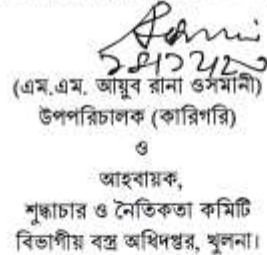 (এম.এম. আয়ুব রানা ওসমানী)
উপপরিচালক (কারিগরি)
ও
আহবায়ক,
শুদ্ধাচার ও নৈতিকতা কমিটি
বিভাগীয় বস্ত্র অধিদপ্তর, খুলনা।